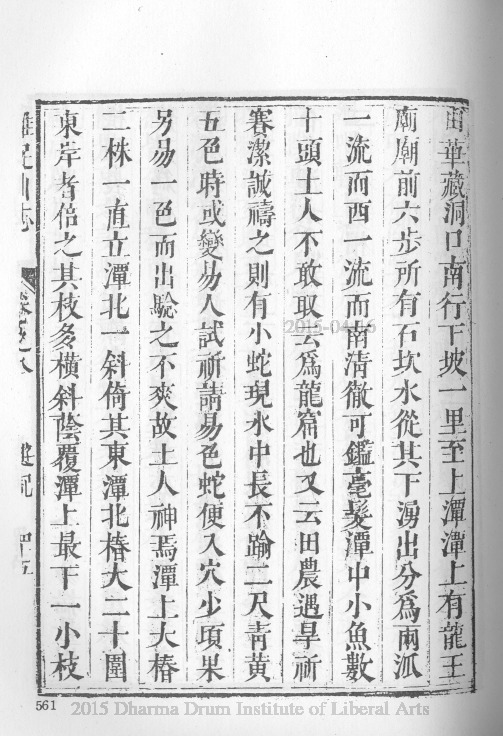 由華藏洞口南行下坡一里至上潭潭上有龍王
廟廟前六步所有石坎水從其下湧出分爲兩派
一流而西一流而南清徹可鑑毫髮潭中小魚數
十頭土人不敢取云爲龍窟也又云田農遇旱祈
賽潔誠禱之則有小蛇現水中長不踰二尺靑黃
五色時或變易人試祈請易色蛇便入穴少頃果
另易一色而出驗之不爽故土人神焉潭上大椿
二株一直立潭北一斜倚其東潭北椿大二十圍
東岸者倍之其枝多橫斜蔭覆潭上最下一小枝
雞足山志
卷之八
遊記
561
2015-04-16
2015 Dharma Drum Institute of Liberal Arts